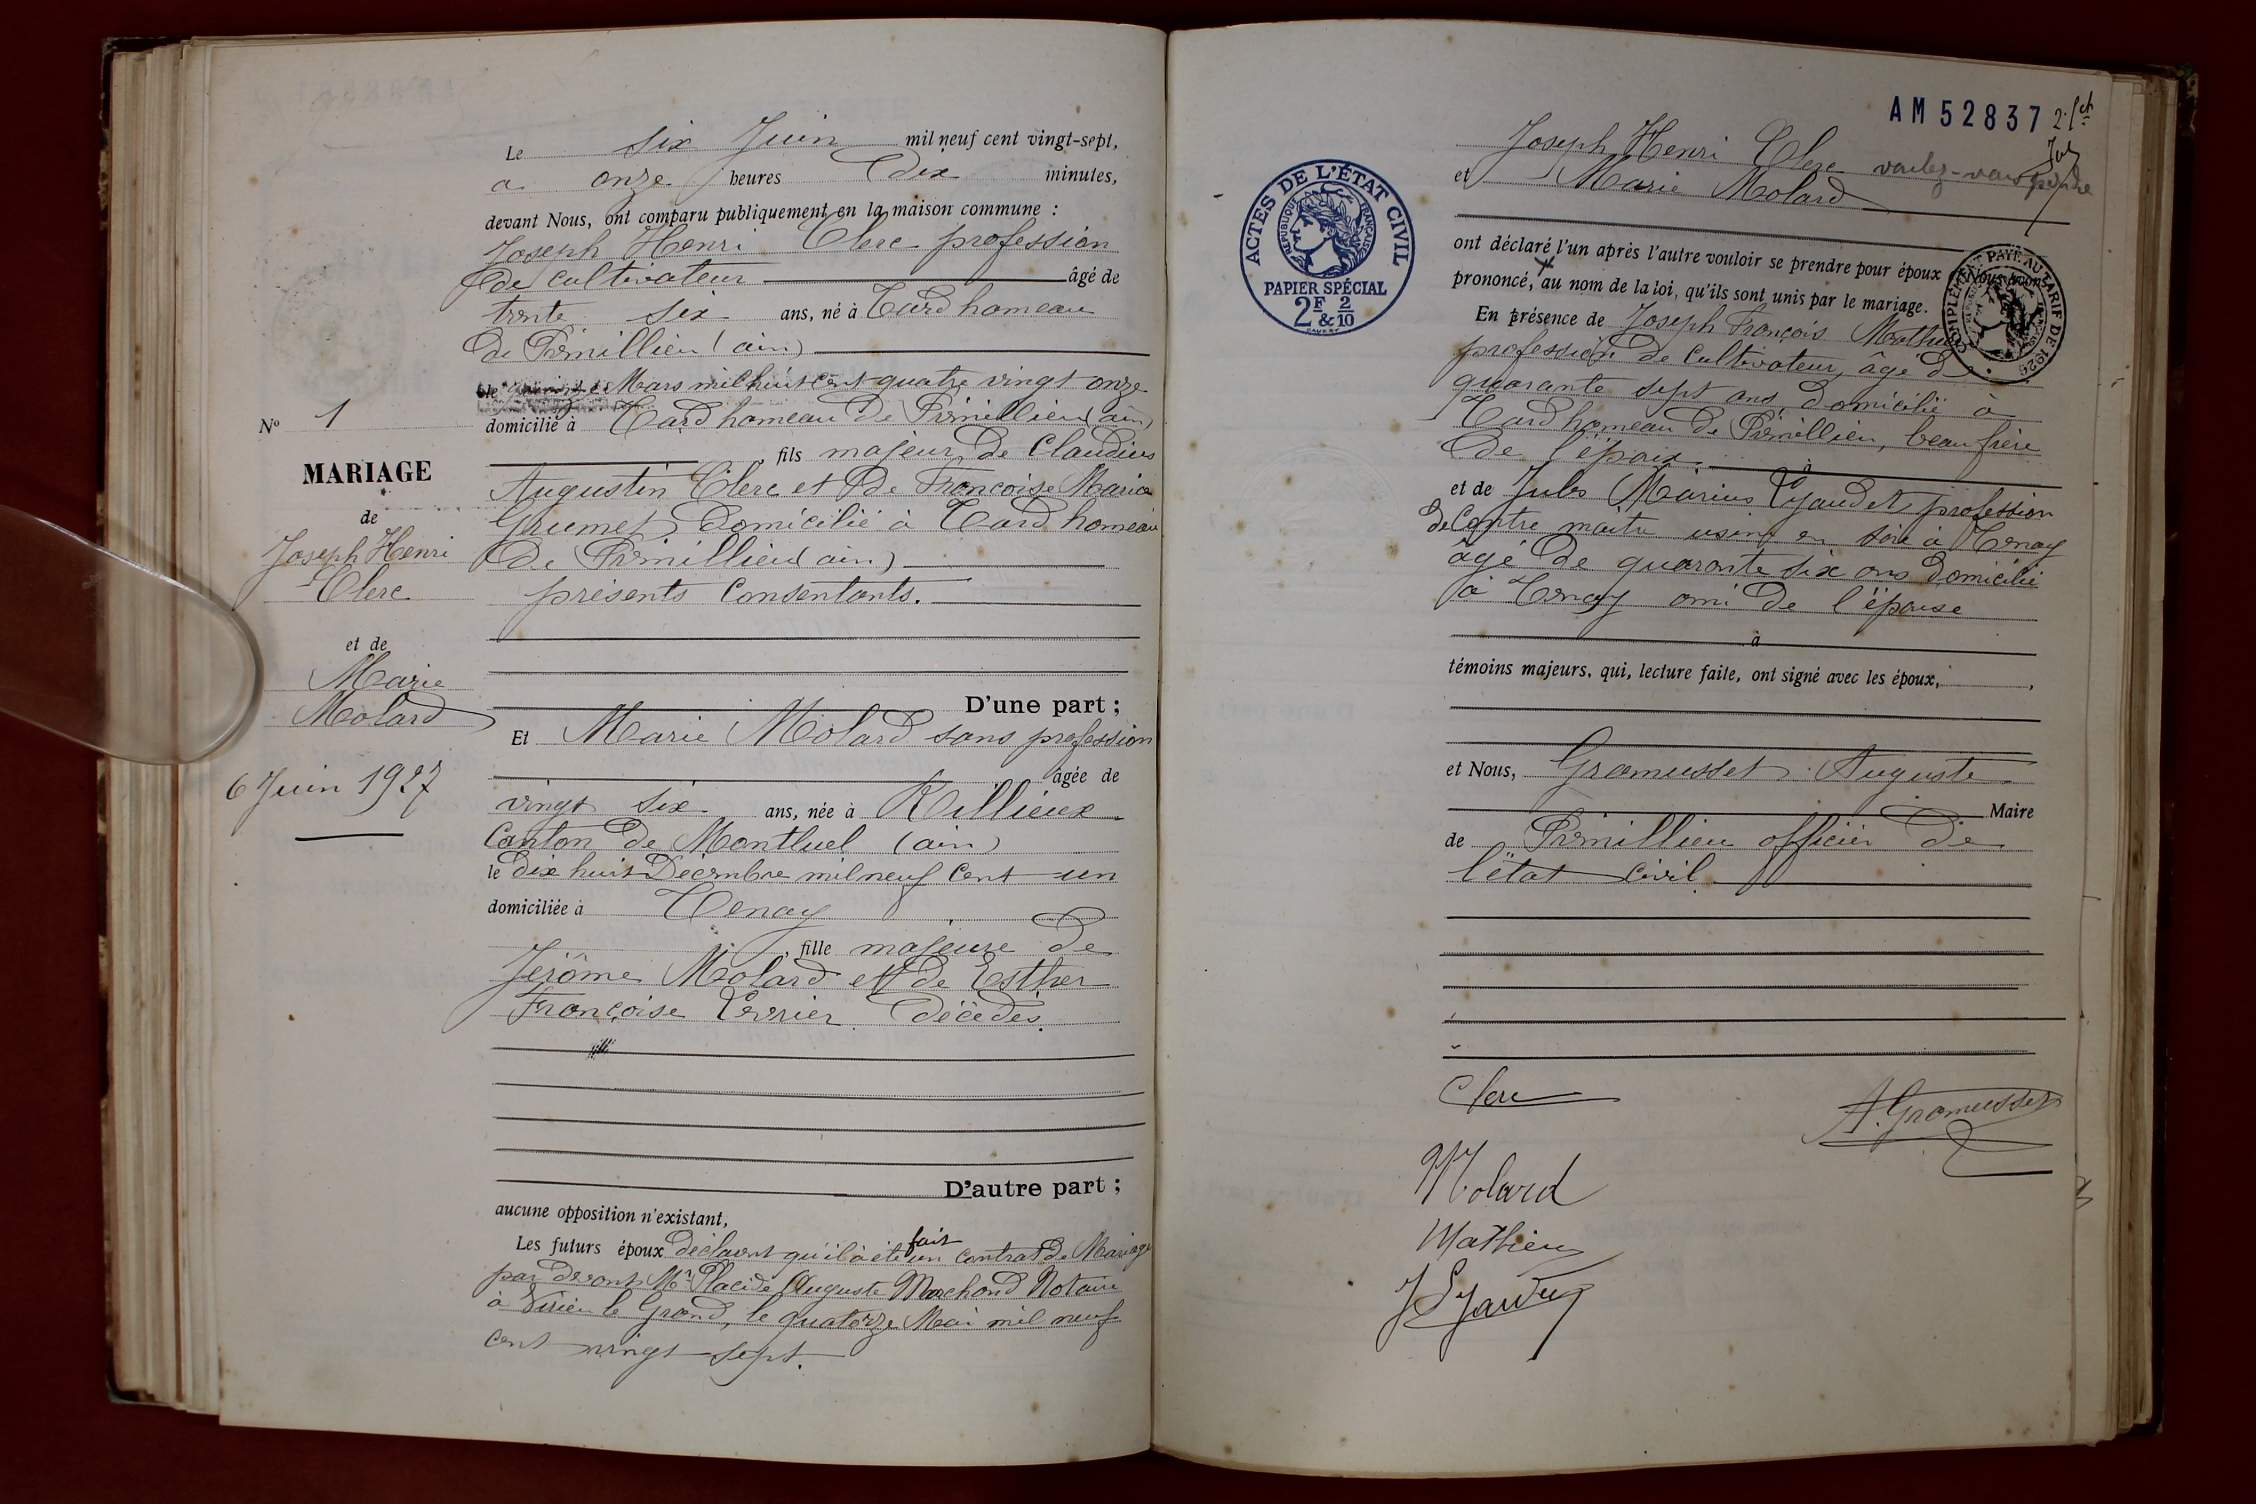 Le six Juin mil neuf cent vingt-sept,
a onze heures Dix minutes,
devant Nous, ont comparu publiquement en la maison commune :
Joseph Henri Clerc profession
de cultivateur âgé de
trente six ans, né à Tard homeau
de Prémillieu (ain)
le Mars mil huit cent quatre vingt onze
domicilié à Tard homeau De Prémillieu (ain)
fils majeur De Claudius
Augustin Clerc et De Francoise Marie
Grumet Domicilié à Tard homeau
De Prémillieu (ain)
présents Consentants.
D'une part ;
Et Marie Molard sans profession
âgée de
vingt six ans, née à Rillieux
Canton De Montluel (ain)
le dix huit Décembre mil neuf cent un
domiciliée à Tenay
, fille majeure De
Jérôme Molard et De Esther
Françoise Perrier Décédés.
D'autre part ;
aucune opposition n'existant,
Les futurs époux déclarent qu'il a été fait un contrat De Mariage
par devant Mr Placide Auguste Marchand Notaire
à Virieu le Grand, le quatorze Mai mil neuf
cent vingt sept.
No 1
MARIAGE
de
Joseph Henri
Clerc
et de
Marie
Molard
6 Juin 1927
AM 52837
ACTES DE L'ÉTAT CIVIL
RÉPUBLIQUE FRANÇAISE
PAPIER SPÉCIAL
2F & 2/10
Joseph Henri Clerc voulez-vous prendre
et Marie Molard
ont déclaré l'un après l'autre vouloir se prendre pour époux Nous avons
prononcé, au nom de la loi, qu'ils sont unis par le mariage.
COMPLÉMENT PAYÉ AU TARIF DE 1926
En présence de Joseph François Mathieu
profession De Cultivateur, âgé De
quarante sept ans, Domicilié à
Tard homeau De Prémillieu, beau frère
De l'époux.
à
et de Jules Marius Lyaudet, profession
De Contre maitre usine en soie à Tenay
âgé De quarante six ans Domicilié
à Tenay ami De l'épouse
à
témoins majeurs, qui, lecture faite, ont signé avec les époux,
et Nous, Gramusset Auguste
Maire
de Prémillieu officier De
l'état Civil
Clerc
A. Gramusset
Molard
Mathieu
J Lyaudet